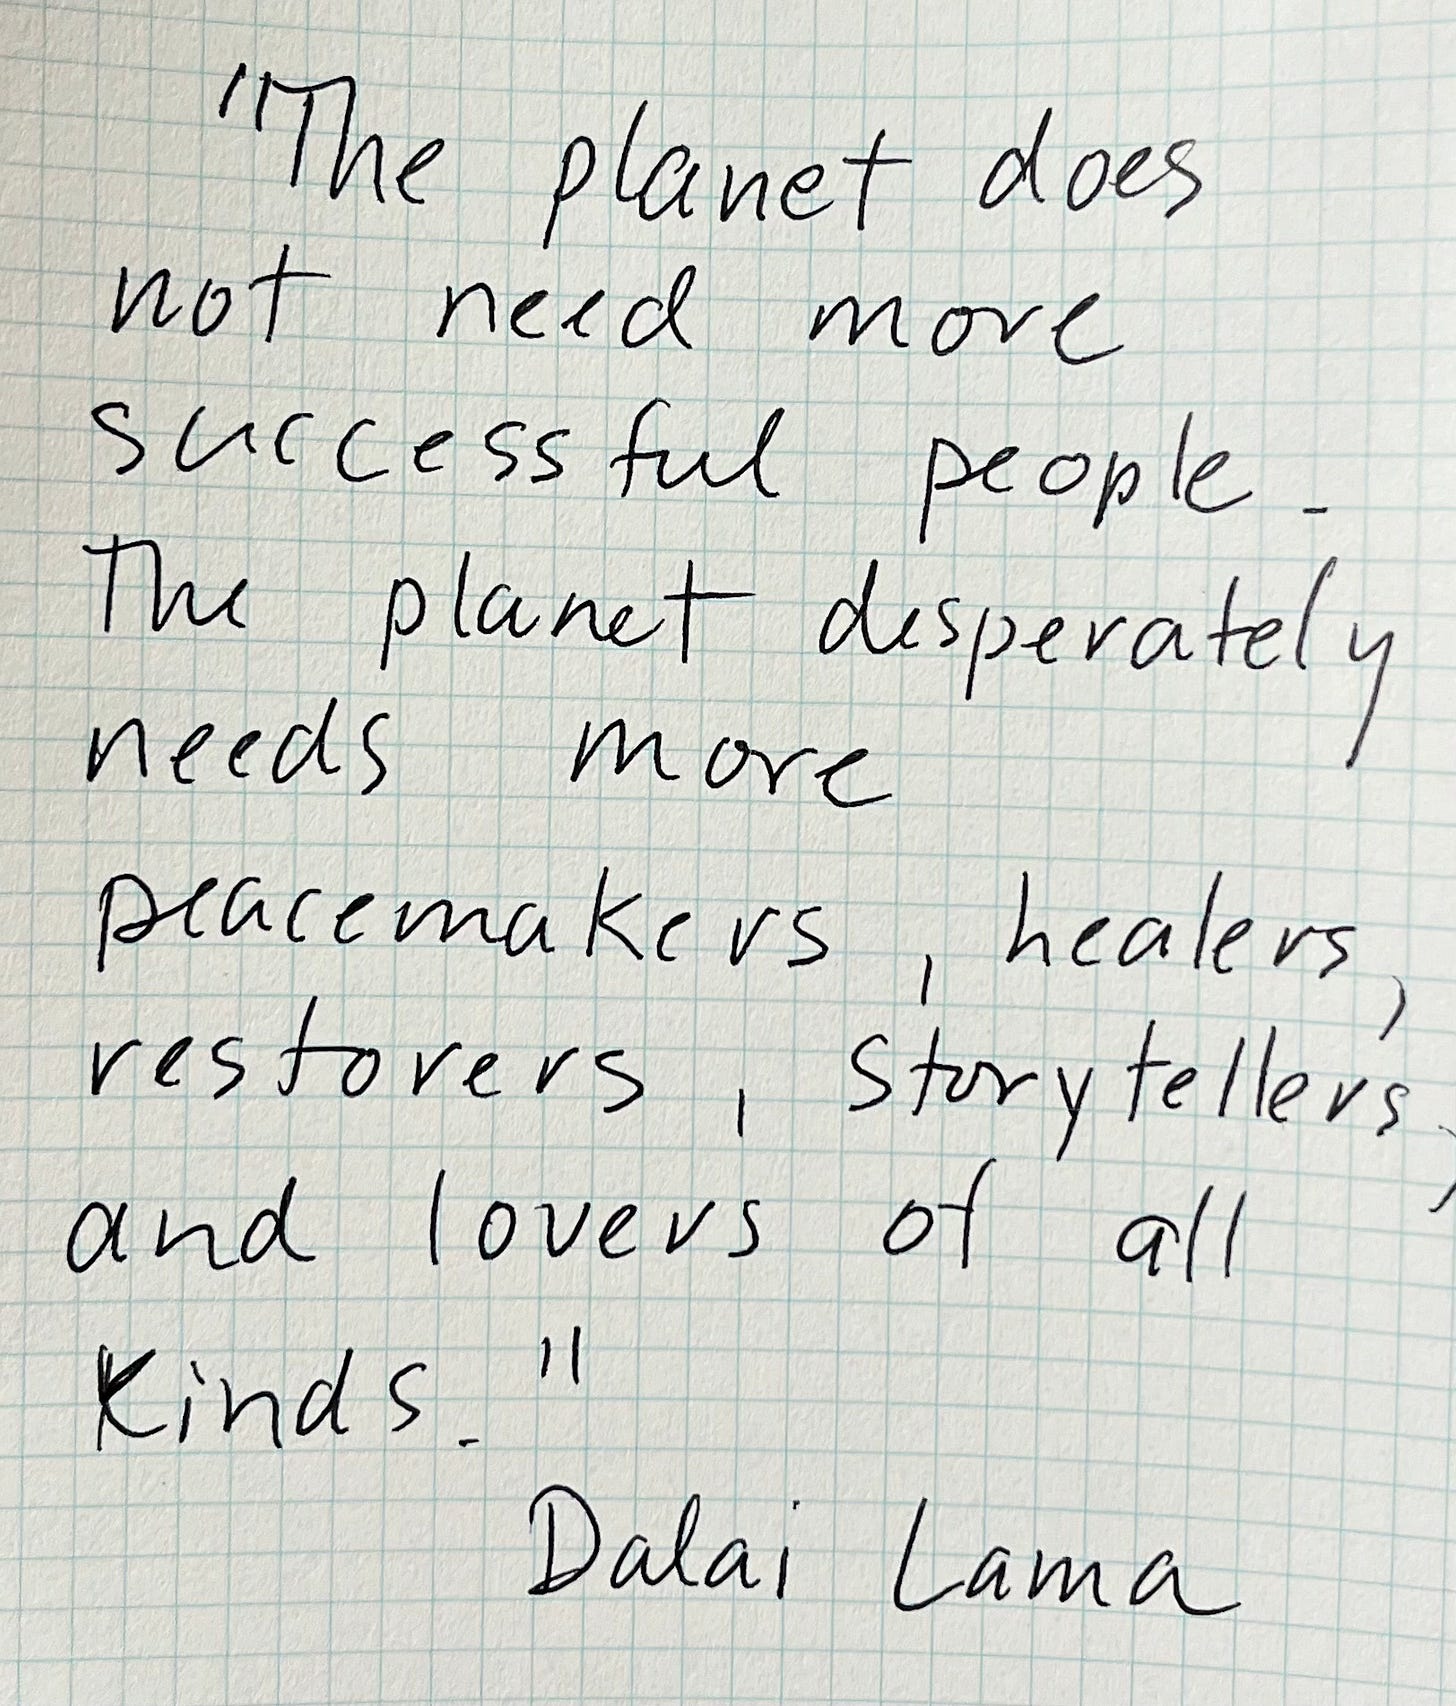 "The planet does
not need more
successful people.
The planet desperately
needs more
peacemakers, healers,
restorers, storytellers,
and lovers of all
Kinds."
Dalai Lama